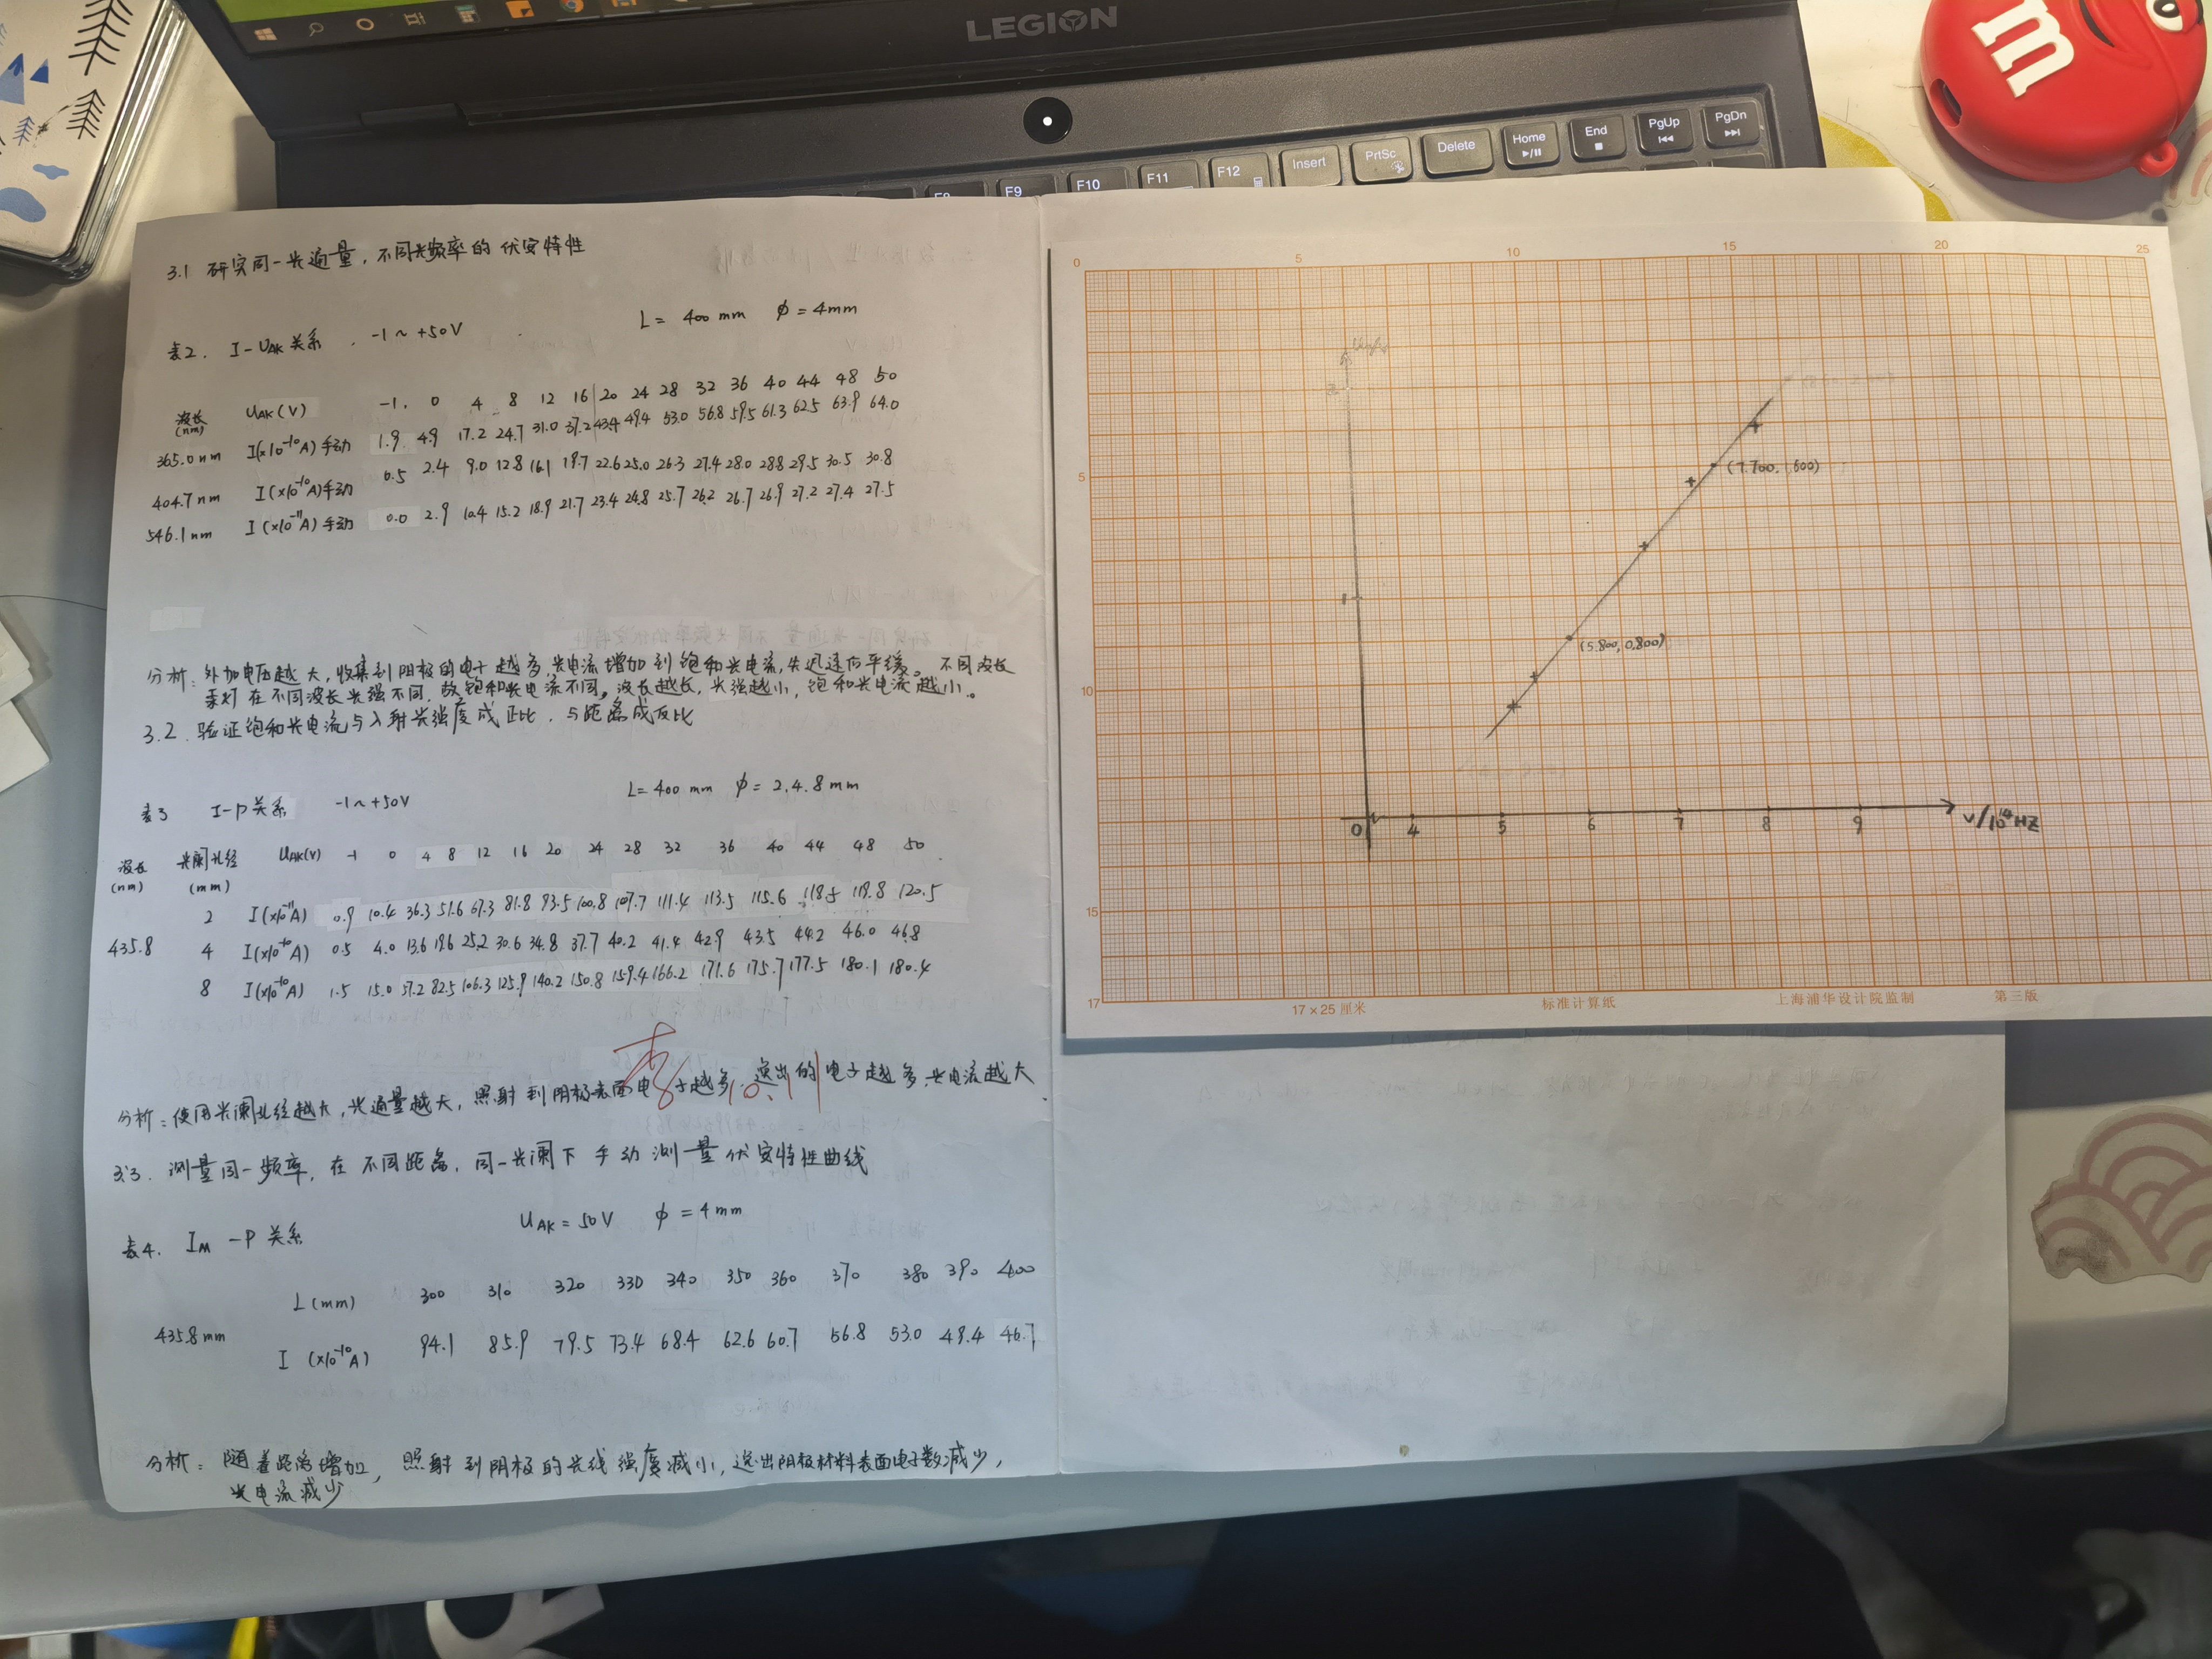 LEGION
Delete
Home
End
PgUp
PgDn
Insert
PrtSc
F9
F10
F11
F12
m
3.1 研究同一光通量，不同光频率的伏安特性
L= 400 mm φ=4mm
表2. I-UAK关系. -1~+50V
波长(nm) UAK(V) -1. 0 4 8 12 16 20 24 28 32 36 40 44 48 50
365.0nm I(x10⁻¹⁰A)手动 1.9 4.9 17.2 24.7 31.0 37.2 43.4 49.4 53.0 56.8 59.5 61.3 62.5 63.9 64.0
404.7nm I(x10⁻¹⁰A)手动 0.5 2.4 9.0 12.8 16.1 19.7 22.6 25.0 26.3 27.4 28.0 28.8 29.5 30.5 30.8
546.1nm I(x10⁻¹¹A)手动 0.0 2.9 10.4 15.2 18.9 21.7 23.4 24.8 25.7 26.2 26.7 26.9 27.2 27.4 27.5
分析：外加电压越大，收集到阳极的电子越多 光电流增加到饱和光电流，先迅速后平缓。不同波长
汞灯在不同波长光强不同，故饱和光电流不同。波长越长，光强越小，饱和光电流越小。
3.2 验证饱和光电流与入射光强度成正比，与距离成反比
L=400 mm φ=2.4.8mm
表3 I-P关系 -1~+50V
波长(nm) 光阑孔径(mm) UAK(V) -1 0 4 8 12 16 20 24 28 32 36 40 44 48 50
2 I(x10⁻¹¹A) 0.9 10.4 36.3 51.6 67.3 81.8 93.5 100.8 107.7 111.4 113.5 115.6 118.5 119.8 120.5
435.8 4 I(x10⁻¹⁰A) 0.5 4.0 13.6 19.6 25.2 30.6 34.8 37.7 40.2 41.4 42.9 43.5 44.2 46.0 46.8
8 I(x10⁻¹⁰A) 1.5 15.0 57.2 82.5 106.3 125.9 140.2 150.8 159.4 166.2 171.6 175.7 177.5 180.1 180.4
10.11
分析：使用光阑孔径越大，光通量越大，照射到阴极表面电子越多，逸出的电子越多，光电流越大.
3.3. 测量同一频率，在不同距离，同一光阑下手动测量伏安特性曲线
UAK=50V φ=4mm
表4. IM-P关系
L(mm) 300 310 320 330 340 350 360 370 380 390 400
435.8mm I (x10⁻¹⁰A) 94.1 85.9 79.5 73.4 68.4 62.6 60.7 56.8 53.0 49.4 46.7
分析：随着距离增加，照射到阴极的光线强度减小，逸出阴极材料表面电子数减少，
光电流减少
0 5 10 15 20 25
5
10
15
17
(7.700, 1.600)
(5.800, 0.800)
1
0 4 5 6 7 8 9 ν/10¹⁴HZ
17×25厘米 标准计算纸 上海浦华设计院监制 第三版